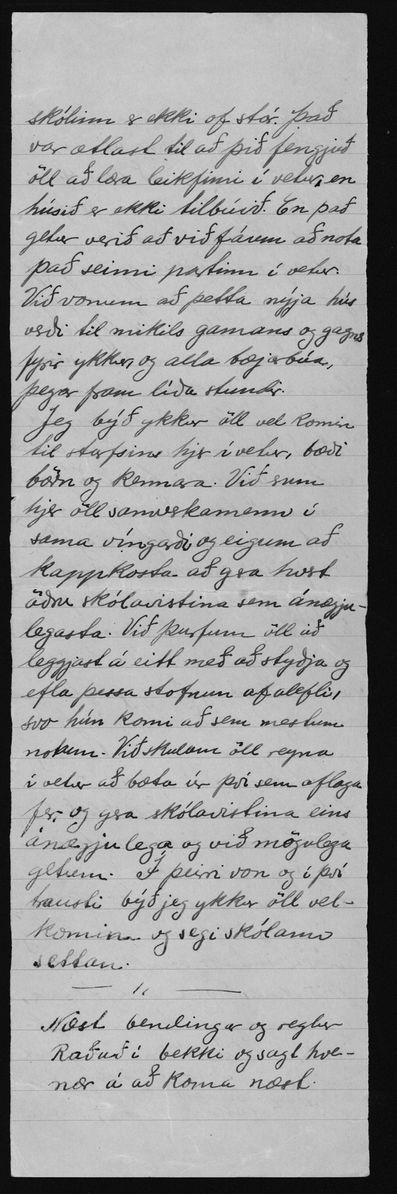 skólinn er ekki of stór. Það
var ætlast til að þið fengjuð
öll að læra leikfimi í vetur, en
húsið er ekki tilbúið. En það
getur verið að við fáum að nota
það seinni partinn í vetur.
Við vonum að þetta nýja hús
verði til mikils gamans og gagns
fyrir ykkur, og alla bæjarbúa,
þegar fram líða stundir.
Jeg býð ykkur öll vel komin
til starfsins hjer í vetur, bæði
börn og kennara. Við erum
hjer öll samverkamenn í
sama víngarði og eigum að
kappkosta að gera hvert
öðru skólavistina sem ánægju-
legasta. Við þurfum öll að
leggjast á eitt með að styðja og
efla þessa stofnun af alefli,
svo hún komi að sem mestum
notum. Við skulum öll reyna
í vetur að bæta úr því sem aflaga
fer, og gera skólavistina eins
ánægjulega og við mögulega
getum. Í þeirri von og í því
trausti býð jeg ykkur öll vel-
komin og segi skólann
settan.
Næst bendingar og reglur
Raðað í bekki og sagt hve-
nær á að koma næst.